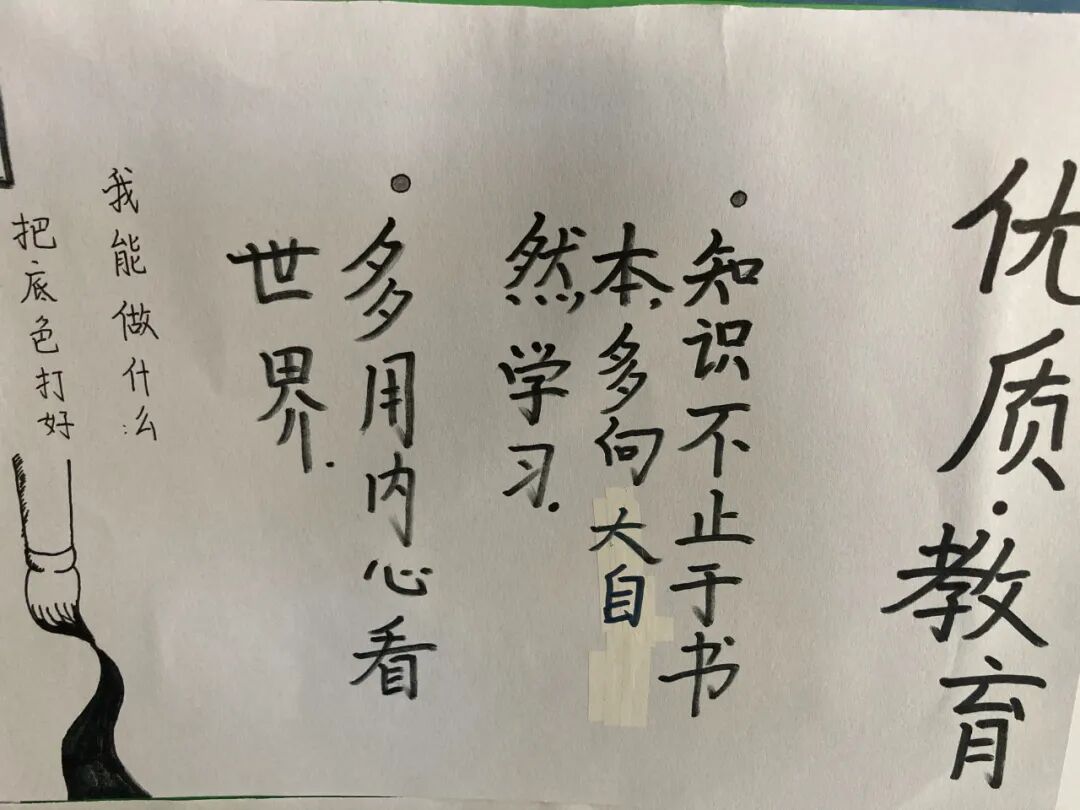 优质·教育
知识不止于书
本,多向大自
然,学习.
多用内心看
世界.
我能做什么:
把底色打好